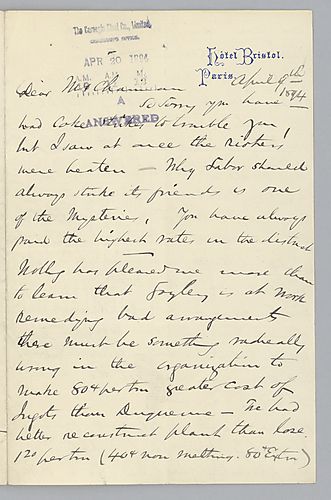 The Carnegie Steel Co., Limited,
CHAIRMAN'S OFFICE.
APR 20 1894
A.M. P.M.
ANSWERED
Hôtel Bristol.
Paris
April 9th
1894
Dear Mr Chairman
So sorry you have
had Coke strikes to trouble you,
but I saw at once the rioters
were beaten — Why Labor should
always strike its friends is one
of the Mysteries, You have always
paid the highest rates in the district
Nothg has pleased me more than
to learn that Gayley is at work
remedying bad arrangements
there must be something radically
wrong in the organization to
make 80¢ per ton greater cost of
Ingots than Duquesne — We had
better reconstruct plant than lose
1 20 per ton (40¢ non melting. 80¢ Extra)